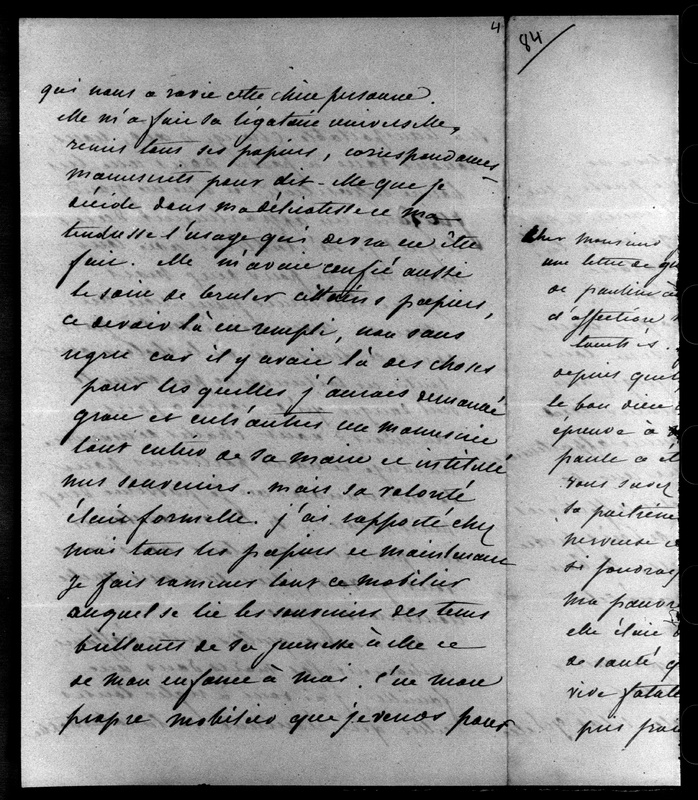 4
qui nous a ravie cette chère personne.
Elle m'a fait sa légataire universelle,
remis tous ses papiers, correspondances
manuscrits pour dit-elle que je
décide dans ma délicatesse et ma
tendresse l'usage qui devra en être
fait. Elle m'avait confié aussi
le soin de bruler certains papiers,
ce devoir là est rempli, non sans
regret car il y avait là des choses
pour lesquelles j'aurais demandé
grace et entr'autres un manuscrit
tout entier de sa main et intitulé
mes souvenirs. mais sa volonté
était formelle. j'ai rapporté chez
moi tous les papiers et maintenant
je fais ramener tout ce mobilier
auquel se lie les souvenirs des tems
brillants de sa jeunesse à elle et
de mon enfance à moi. C'est mon
propre mobilier que je vends pour
84
Cher monsieur
une lettre de
de pauline
d'affection
depuis
le bon dieu
épreuve à
paule a
vous savez
sa poitrine
nerveuse
si
ma pauvre
elle était
de santé
vive
puis